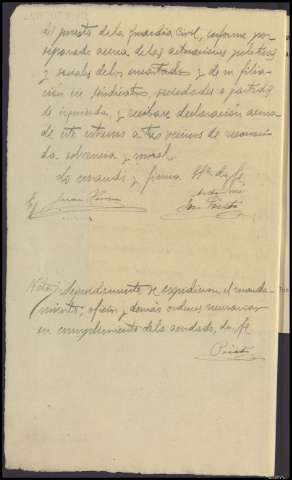 del puesto de la Guardia Civil, informe por
separado acerca de las actuaciones políticas
y sociales de los encartados y de su filia-
ción en sindicatos, sociedades o partidos
de izquierda, y recíbase declaración acerca
de este extremo a tres vecinos de reconoci-
da solvencia y moral.
Lo mandó y firma S.Sª. doy fe
ante mí
Nota/ Seguidamente se expidieron el manda-
miento, oficios y demás ordenes necesarias
en cumplimiento de lo acordado, doy fe
Prieto